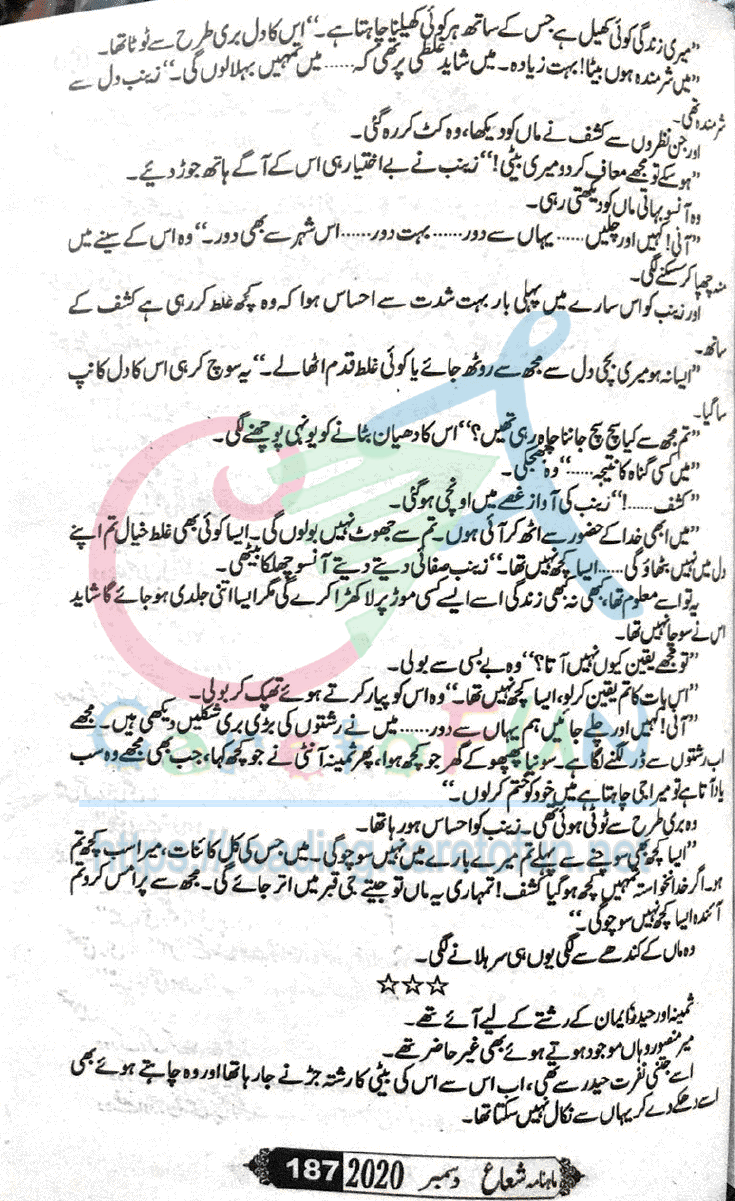 ”میری زندگی کوئی کھیل ہے جس کے ساتھ ہر کوئی کھیلنا چاہتا ہے۔“ اس کا دل بری طرح سے ٹوٹا تھا۔
”میں شرمندہ ہوں بیٹا! بہت زیادہ۔ میں شاید غلطی پر تھی کہ...... میں تمہیں بہلا لوں گی۔“ زینب دل سے
شرمندہ تھی۔
اور جن نظروں سے کشف نے ماں کو دیکھا، وہ کٹ کر رہ گئی۔
”ہو سکے تو مجھے معاف کر دو میری بیٹی!“ زینب نے بے اختیار ہی اس کے آگے ہاتھ جوڑ دیئے۔
وہ آنسو بہاتی ماں کو دیکھتی رہی۔
”آنی! کہیں اور چلیں...... یہاں سے دور...... بہت دور...... اس شہر سے بھی دور۔“ وہ اس کے سینے میں
منہ چھپا کر سسکنے لگی۔
اور زینب کو اس سارے میں پہلی بار بہت شدت سے احساس ہوا کہ وہ کچھ غلط کر رہی ہے کشف کے
ساتھ۔
”ایسا نہ ہو میری بچی دل سے مجھ سے روٹھ جائے یا کوئی غلط قدم اٹھا لے۔“ یہ سوچ کر ہی اس کا دل کانپ
سا گیا۔
”تم مجھ سے کیا سچ سچ جاننا چاہ رہی تھیں؟“ اس کا دھیان بٹانے کو یونہی پوچھنے لگی۔
”میں کسی گناہ کا نتیجہ......“ وہ جھجکی۔
”کشف......!“ زینب کی آواز غصے میں اونچی ہو گئی۔
”میں ابھی خدا کے حضور سے اٹھ کر آئی ہوں۔ تم سے جھوٹ نہیں بولوں گی۔ ایسا کوئی بھی غلط خیال تم اپنے
دل میں نہیں بٹھاؤ گی...... ایسا کچھ نہیں تھا۔“ زینب صفائی دیتے دیتے آنسو چھلکا بیٹھی۔
یہ تو اسے معلوم تھا، کبھی نہ کبھی زندگی اسے ایسے کسی موڑ پر لا کھڑا کرے گی مگر ایسا اتنی جلدی ہو جائے گا شاید
اس نے سوچا نہیں تھا۔
”تو مجھے یقین کیوں نہیں آتا؟“ وہ بے بسی سے بولی۔
”اس بات کا تم یقین کر لو، ایسا کچھ نہیں تھا۔“ وہ اس کو پیار کرتے ہوئے تھپک کر بولی۔
”آنی! کہیں اور چلے جائیں ہم یہاں سے دور...... میں نے رشتوں کی بڑی بری شکلیں دیکھی ہیں۔ مجھے
اب رشتوں سے ڈر لگنے لگا ہے۔ سونیا پھپھو کے گھر جو کچھ ہوا، پھر ثمینہ آنٹی نے جو کچھ کہا، جب بھی مجھے وہ سب
یاد آتا ہے تو میرا جی چاہتا ہے میں خود کو ختم کر لوں۔“
وہ بری طرح سے ٹوٹی ہوئی تھی۔ زینب کو احساس ہو رہا تھا۔
”ایسا کچھ بھی سوچنے سے پہلے تم میرے بارے میں نہیں سوچو گی۔ میں جس کی کل کائنات، میرا سب کچھ تم
ہو۔ اگر خدانخواستہ تمہیں کچھ ہو گیا کشف! تمہاری یہ ماں تو جیتے جی قبر میں اتر جائے گی۔ مجھ سے پرامس کرو تم
آئندہ ایسا کچھ نہیں سوچو گی۔“
وہ ماں کے کندھے سے لگی یوں ہی سر ہلانے لگی۔
☆☆☆
ثمینہ اور حیدر ایمان کے رشتے کے لیے آئے تھے۔
میر منصور وہاں موجود ہوتے ہوئے بھی غیر حاضر تھے۔
اسے جتنی نفرت حیدر سے تھی، اب اس سے اس کی بیٹی کا رشتہ جڑنے جا رہا تھا اور وہ چاہتے ہوئے بھی
اسے دھکے دے کر یہاں سے نکال نہیں سکتا تھا۔
ماہنامہ شعاع دسمبر 2020 187
https://reading.caretofun.net